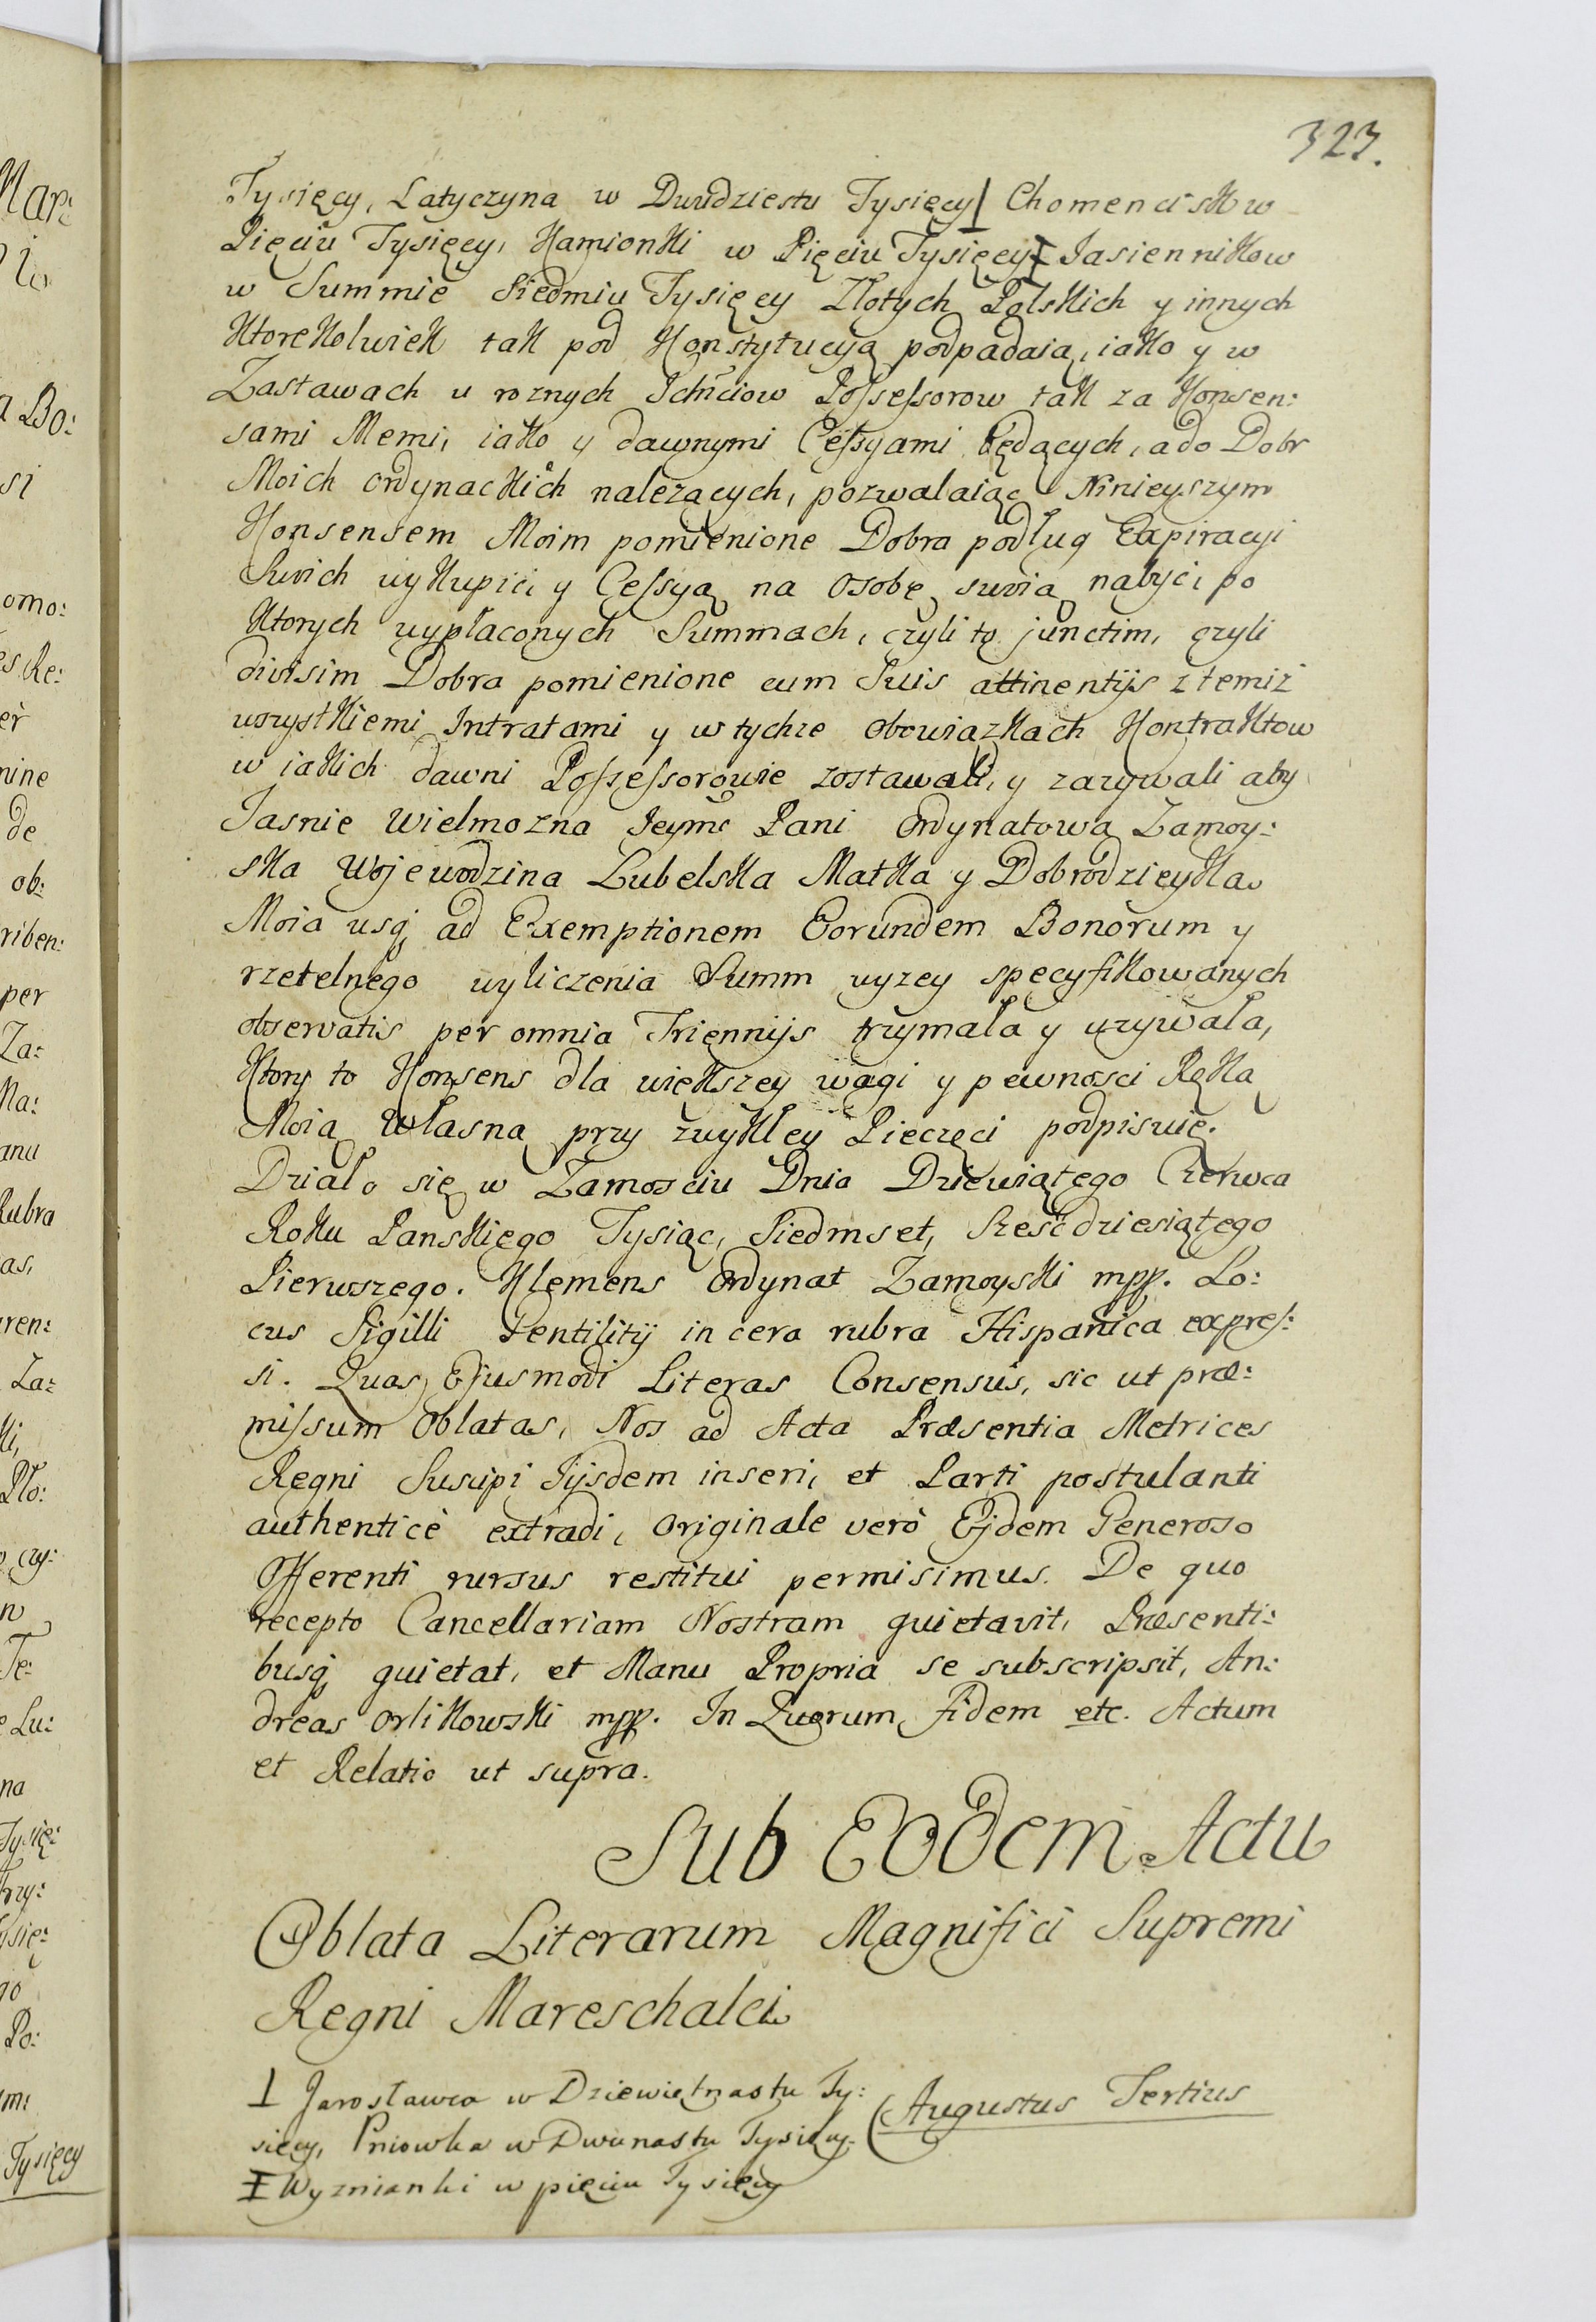 323.
Tysięcy, Łatyczyna w Dwudziestu Tysięcy ⊥ Chomencisk w
Pięciu Tysięcy, Kamionki w Pięciu Tysięcy Ɪ Jasiennikow
w Summie Siedmiu Tysięcy Złotych Polskich y innych
Ktorekolwiek tak pod Konstytucyą podpadaią, iako y w
Zastawach u roznych Ichmciow Possessorow tak za Konsen:
sami Memi, iako y dawnymi Cessyami będących, a do Dobr
Moich Ordynackich nalezących, pozwalaiąc Ninieyszym
Konsensem Moim pomienione Dobra podług Expiracyi
Swich wykupić, y Cessyą na Osobę swoią nabyć, po
Ktorych wypłaconych Summach, czyli to junctim, czyli
divisim Dobra pomienione cum Suis attinentijs z temiż
wszystkiemi Intratami y w tychze Obowiązkach Kontraktow
w iakich dawni Possessorowie zostawali, y zazywali aby
Jasnie Wielmozna Jeymć Pani Ordynatowa Zamoy:
ska Wojewodzina Lubelska Matka y Dobrodzieyka
Moia usq ad Exemptionem Eorundem Bonorum y
rzetelnego wyliczenia Summ wyzey specyfikowanych
observatis per omnia Triennijs trzymała y uzywała,
Ktory to Konsens dla większey wagi y pewnosci Ręką
Moią Własną przy zwykłey Pieczęci podpisuię.
Działo się w Zamosciu Dnia Dziewiątego Czerwca
Roku Panskiego Tysiąc, Siedmset, Szesćdziesiątego
Pierwszego. Klemens Ordynat Zamoyski mpp. Lo:
cus Sigilli Gentilitij in cera rubra Hispanica expres:
si. Quas Ejusmodi Literas Consensus, sic ut præ:
missum Oblatas, Nos ad Acta Præsentia Metrices
Regni Suscipi Iijsdem inseri, et Parti postulanti
authenticè extradi, Originale verò Ejdem Generoso
Offerenti rursus restitui permisimus. De quo
recepto Cancellariam Nostram quietavit, Præsenti:
busq quietat, et Manu Propria se subscripsit, An:
dreas Orlikowski mpp. In Quorum fidem etc. Actum
et Relatio ut supra.
Sub Eodem Actu
Oblata Literarum Magnifici Supremi
Regni Mareschalci
⊥ Jarosławca w Dziewiętnastu Ty:
sięcy, Pniowka w Dwunastu Tysięcy.
Ɪ Wyznianki w pięciu Tysięcy
Augustus Tertius
Mar:
a Bo:
si
omo:
es Re:
er
nine
de
ob:
riben:
per
Za:
Ka:
anu
Rubra
as,
ren:
Za:
ki,
Pło:
czy:
w
Te:
e Lu:
na
Tysię:
trzy:
ysię:
go
Po:
m:
Tysięcy